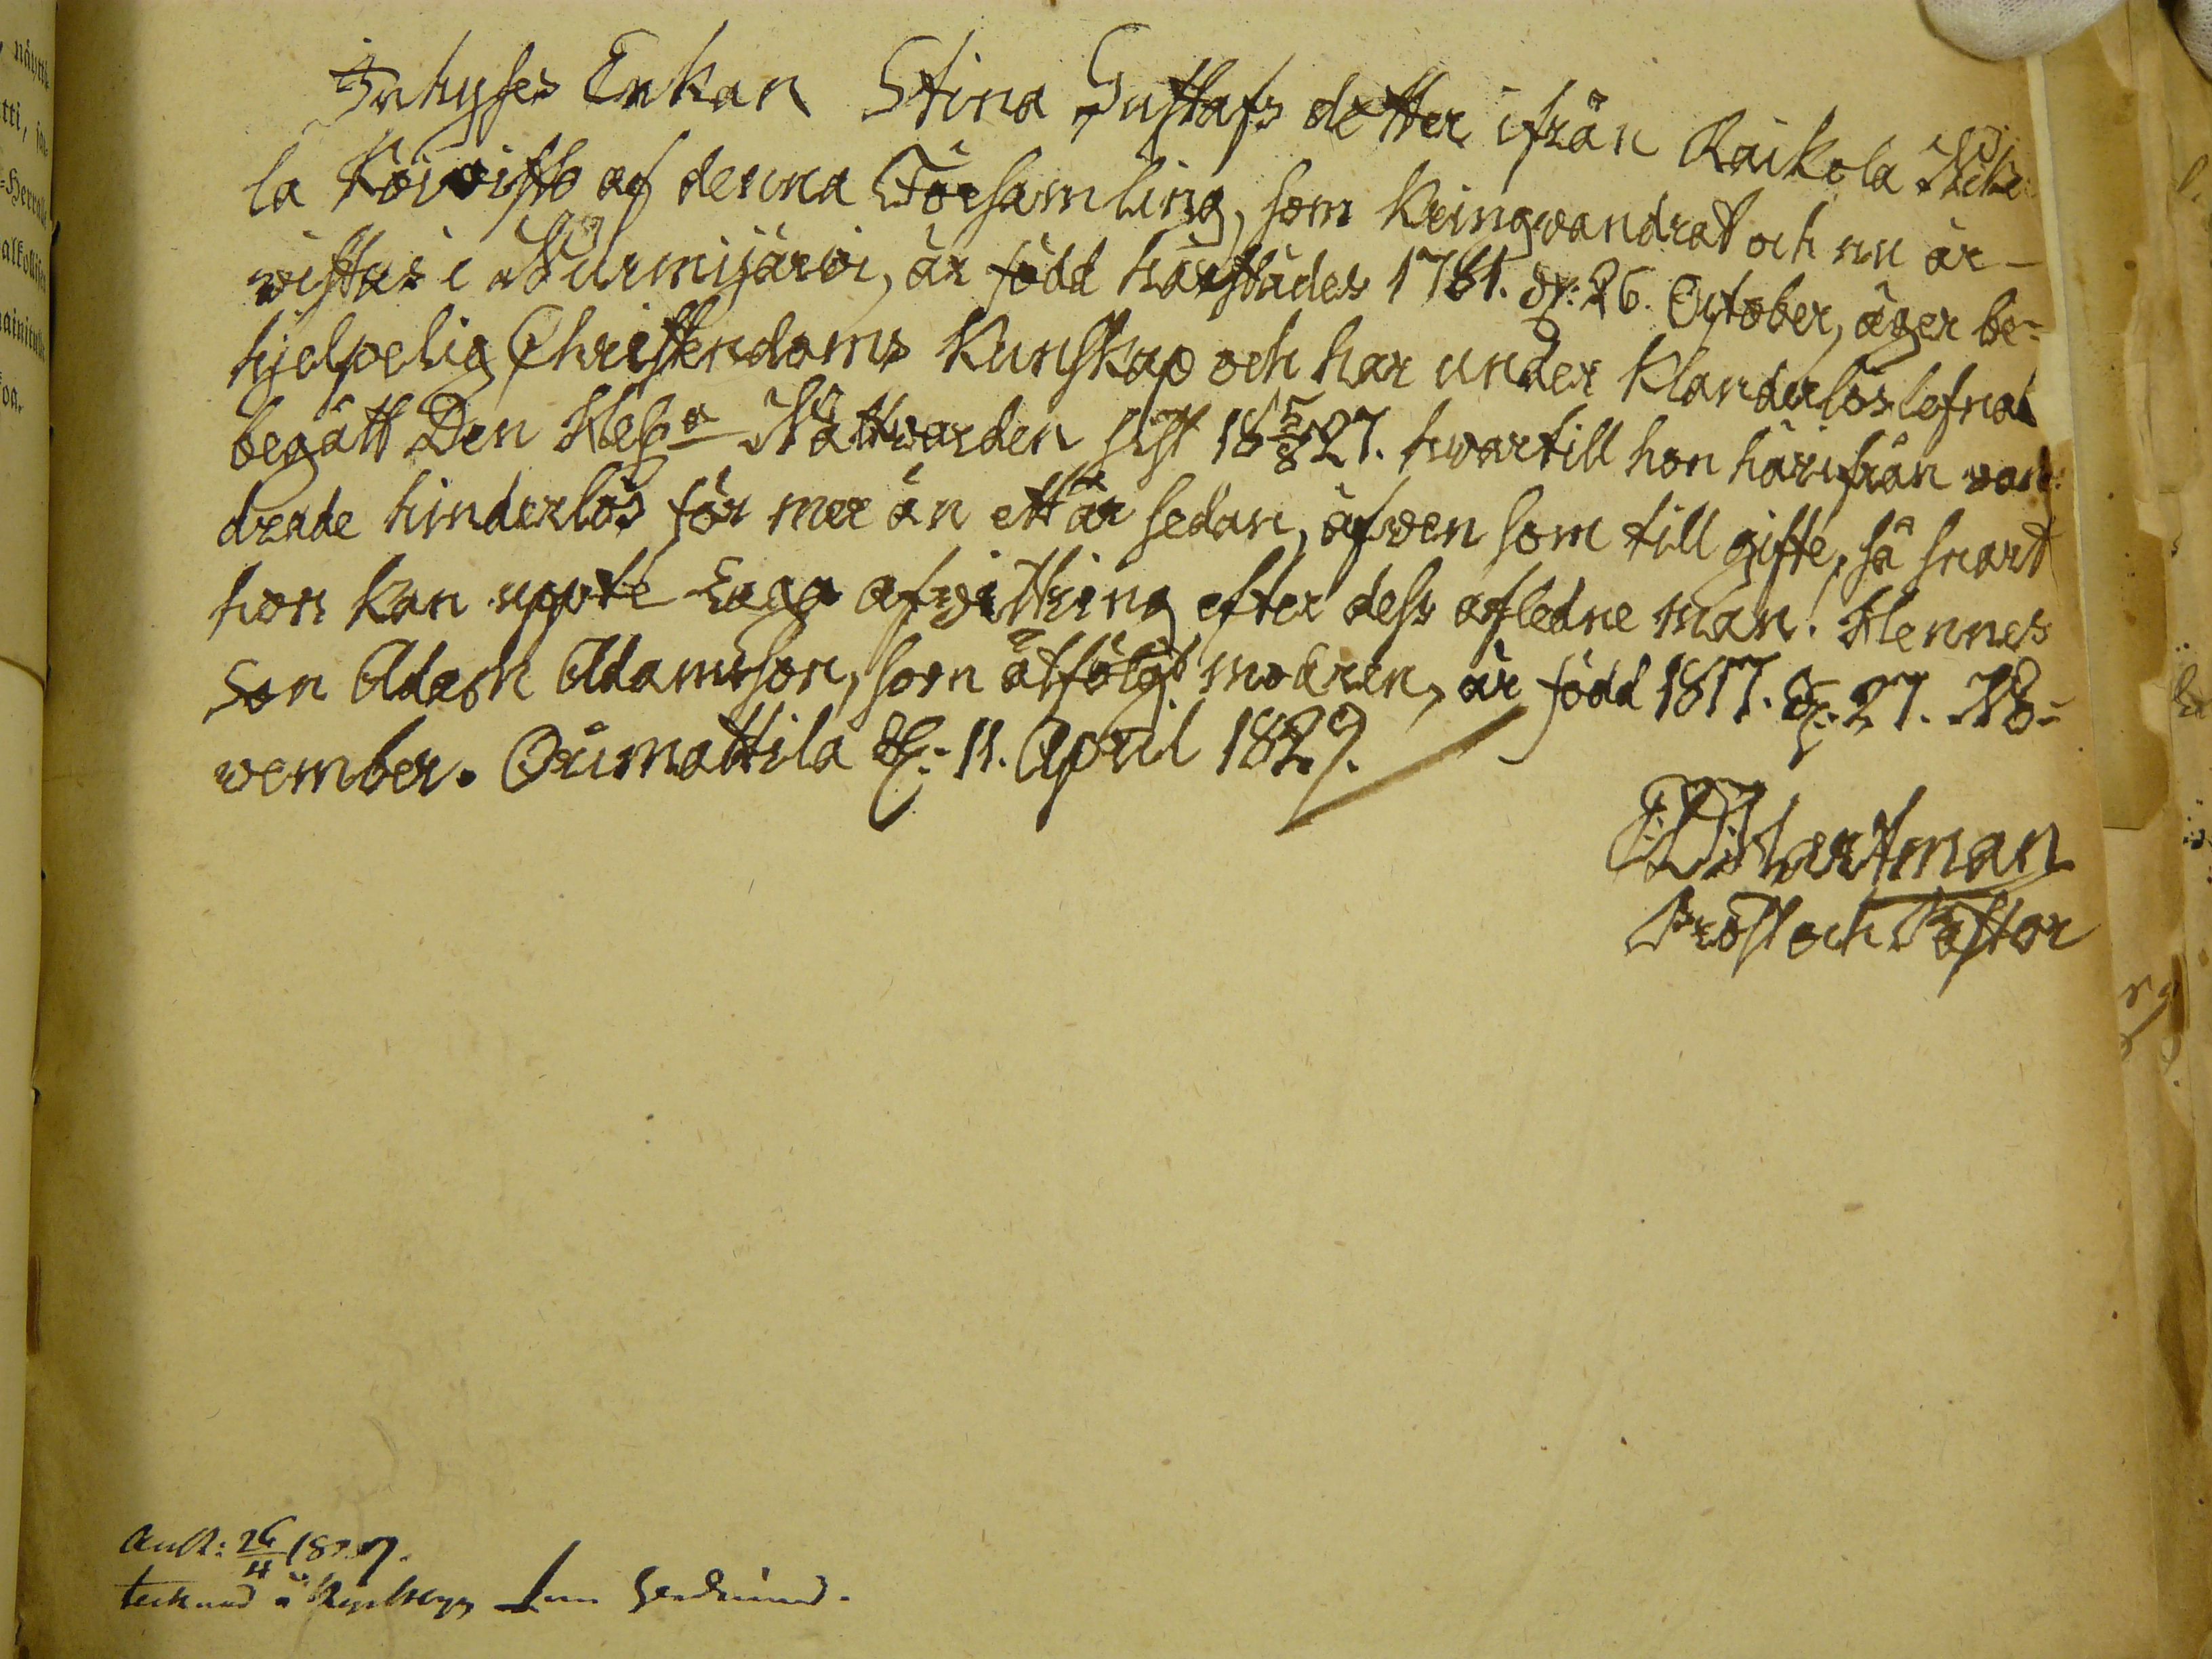 Inhyses Enkan Stina Gustafs dotter ifrån Raikola
la Koivisto af denna Församling, som Kringvandrat och nu är
vistas i Nurmijärvi, är född härstädes 1781. d: 26. October, äger be-
hjelpelig Christendoms Kunskap och har under Klanderlös lefnad
begått Den Helga Nattvarden sist 18 5/8 27. hvartill hon härifrån van-
drade hinderlös för mer än ett år sedan, äfven som till gifte, så snart
hon kan uppte Laga afvittring efter dess aflednе man. Hennes
Son Adam Adamsson, som åtföljt modren, är född 1817. d. 27. No-
vember. Orimattila d. 11. April 1829.
Hartman
Prost och Pastor
näytti
tti,
Herralle
oa.
Ank: 26/4 1829.